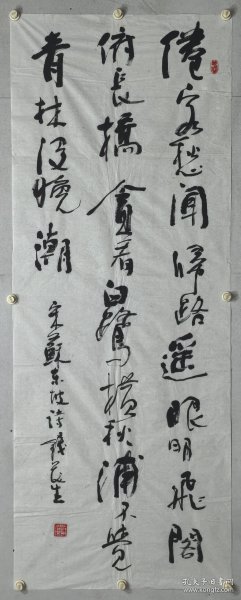 倦客愁闻归路遥眼明飞阁
俯长桥贪看白鹭横秋浦不觉
青林没晚潮
宋苏东坡诗